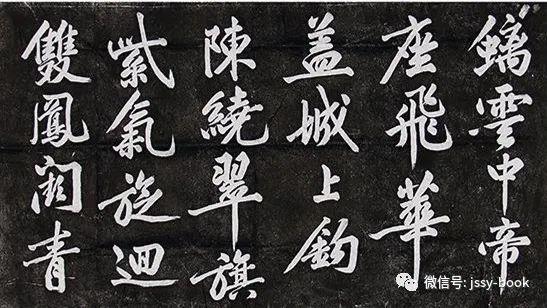 螭雲中帝
座飛華
盖城上鈎
陳繞翠旗
紫氣旋迴
雙鳳闕青
微信号: jssy-book